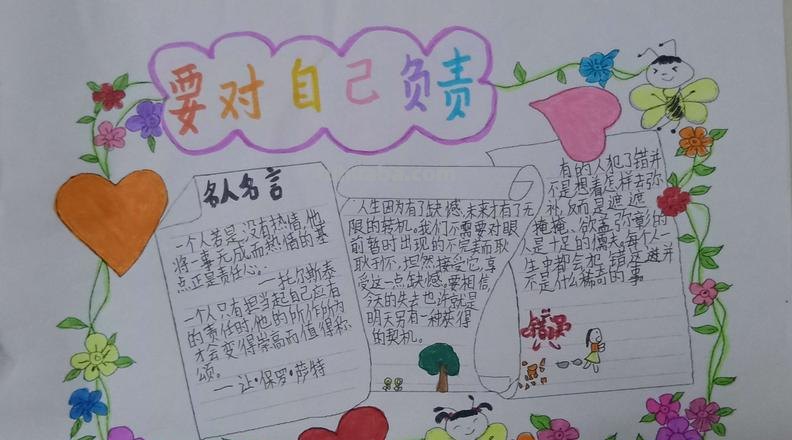 要对自己负责
名人名言
一个人若是没有热情,他
将一事无成而热情的基
点正是责任心。
——托尔斯泰
一个人只有担当起自己应有
的责任时,他的所作所为
才会变得崇高而值得称
颂。
——让·保罗·萨特
人生因为有了缺憾,未来才有了无
限的转机。我们不需要对眼
前暂时出现的不完美而耿
耿于怀,坦然接受它,享
受这一点缺憾。要相信,
今天的失去也许就是
明天另有一种获得
的契机。
有的人犯了错并
不是想着怎样去弥
补,反而是遮遮
掩掩、欲盖弥彰的
人是十足的懦夫。每个人一
生中都会犯错,这并
不是什么稀奇的事
错误